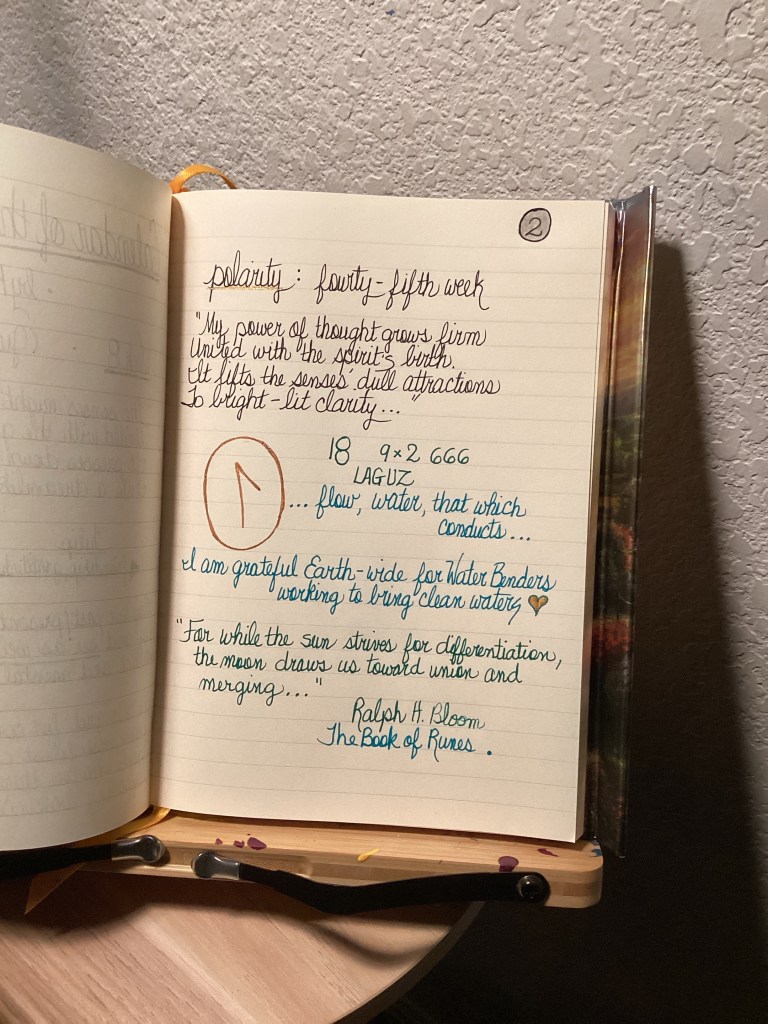 2
polarity: fourty-fifth week
"My power of thought grows firm
United with the spirit's birth.
It lifts the senses' dull attractions
To bright-lit clarity..."
18 9×2 666
LAGUZ
... flow, water, that which
conducts...
I am grateful Earth-wide for Water Benders
working to bring clean waters
"For while the sun strives for differentiation,
the moon draws us toward union and
merging..."
Ralph H. Bloom
The Book of Runes.
Calendar of th